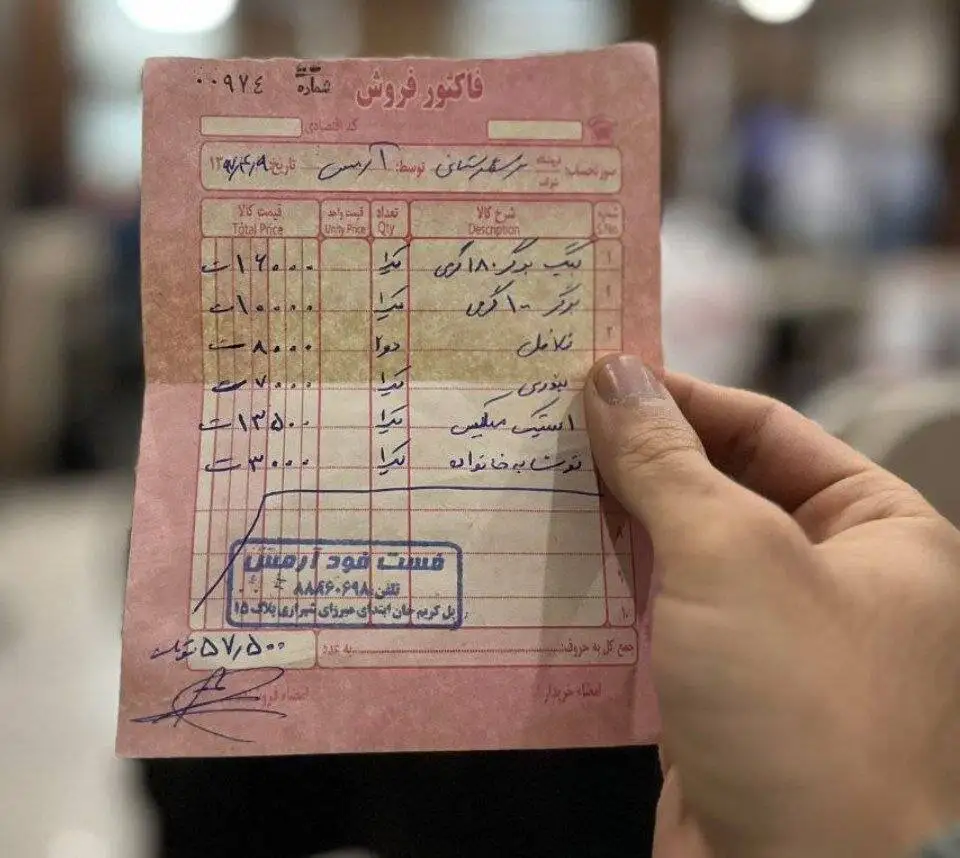 فاکتور فروش
شماره ۰۰۹۷٤
کد اقتصادی
صورتحساب: فروشگاه شرکت توسط: آرمس تاریخ: ۱۳۹۷/٤/۹
شماره S.No. شرح کالا Description تعداد Qty قیمت واحد Unity Price قیمت کالا Total Price
۱ بیگ برگر ۱۸۰ گرمی یکرا ۱۶۰۰۰ ت
برگر ۱۰۰ گرمی یکرا ۱۰۰۰۰ ت
فلافل دورا ۸۰۰۰ ت
بندری یکرا ۷۰۰۰ ت
استیک میکس یکرا ۱۳۵۰۰ ت
نوشابه خانواده یکرا ۳۰۰۰ ت
۸
۱۰
فست فود آرمس
تلفن: ۸۸۸۴۰۶۹۸
پل کریم خان ابتدای میرزای شیرازی پلاک ۱۵
جمع کل به حروف: به عدد ۵۷٫۵۰۰ تومان
امضاء خریدار امضاء فروشنده